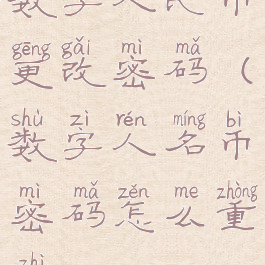 gēng gǎi mì mǎ
更改密码（
shù zì rén míng bì
数字人名币
mì mǎ zěn me zhòng
密码怎么重
zhì